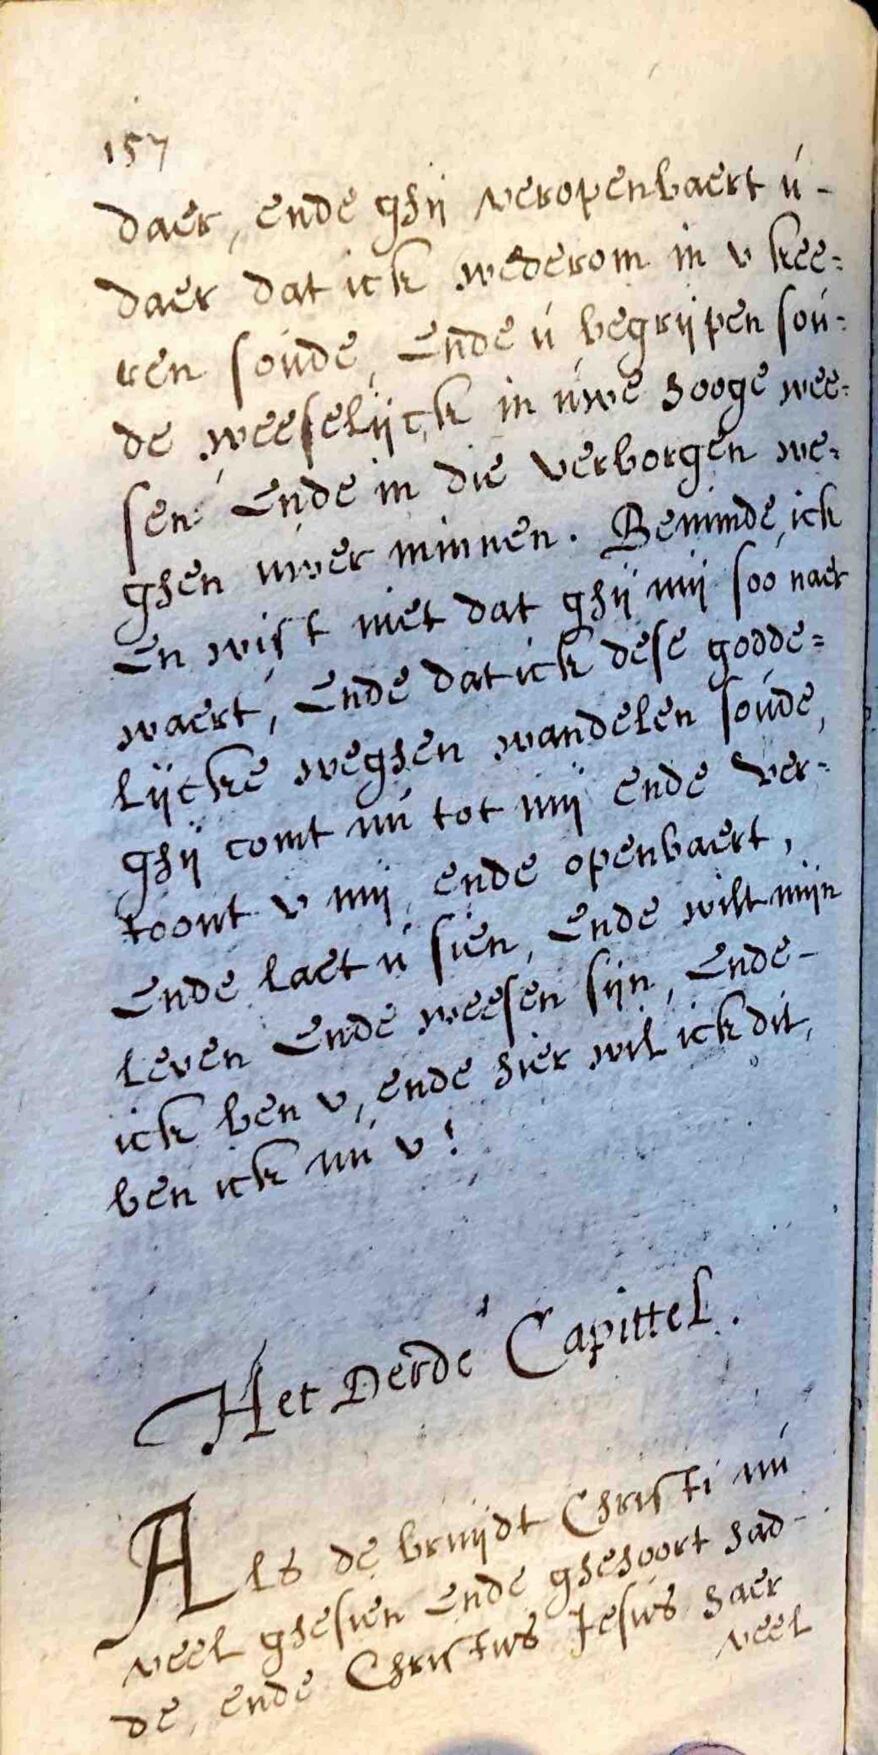 157
daer, ende ghij veropenbaert ú -
daer dat ick wederom in v kee=
ren soúde, Ende ú begrijpen soú=
de weeselijck in úwe hooge wee=
sen Ende in die verborgen we=
ghen uwer minnen. Beminde, ick
En wist niet dat ghij mij soo naer
waert, Ende dat ick dese godde=
lijcke weghen wandelen soúde,
ghij comt nú tot mij ende ver=
toont v mij, ende openbaert,
Ende laet ú sien, Ende wilt mijn
leven Ende weesen sijn, Ende -
ick ben v, ende hier wil ick dit,
ben ick nú v!
Het Derde Capittel.
Als de bruijdt Christi nú
veel ghesien Ende ghehoort had-
de, ende Christus Jesús haer
veel